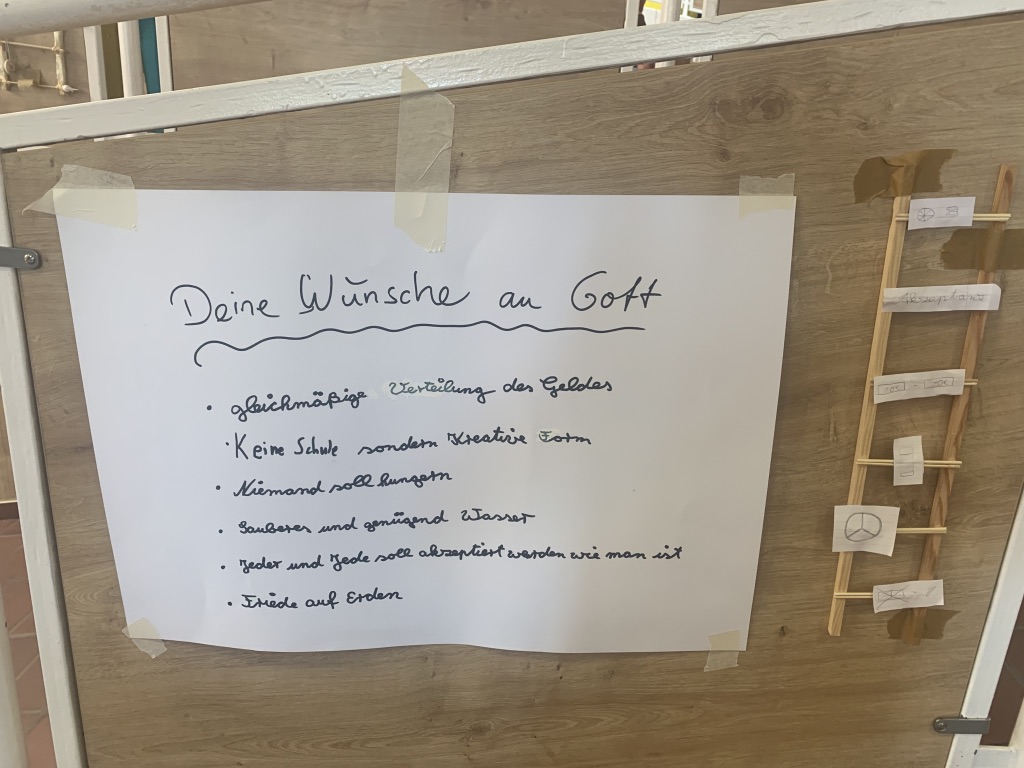 Deine Wünsche an Gott
• gleichmäßige Verteilung des Geldes
• Keine Schule sondern Kreative Form
• Niemand soll hungern
• Sauberes und genügend Wasser
• Jeder und Jede soll akzeptiert werden wie man ist
• Friede auf Erden